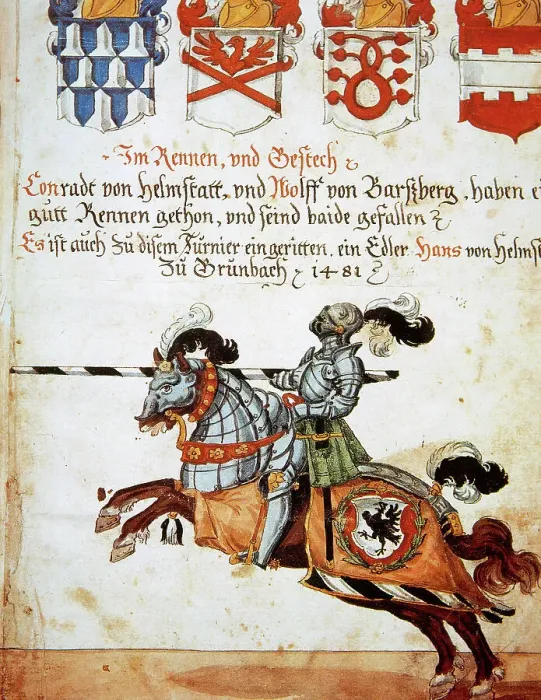 Im Rennen, vnd Gestech
Conradt von Helmstatt, vnd Wolff von Barßberg, haben ei
gutt Rennen gethon, vnd seind baide gefallen
Es ist auch Zu disem Turnier eingeritten, ein Edler Hans von Helmst
Zu Grunbach 1481